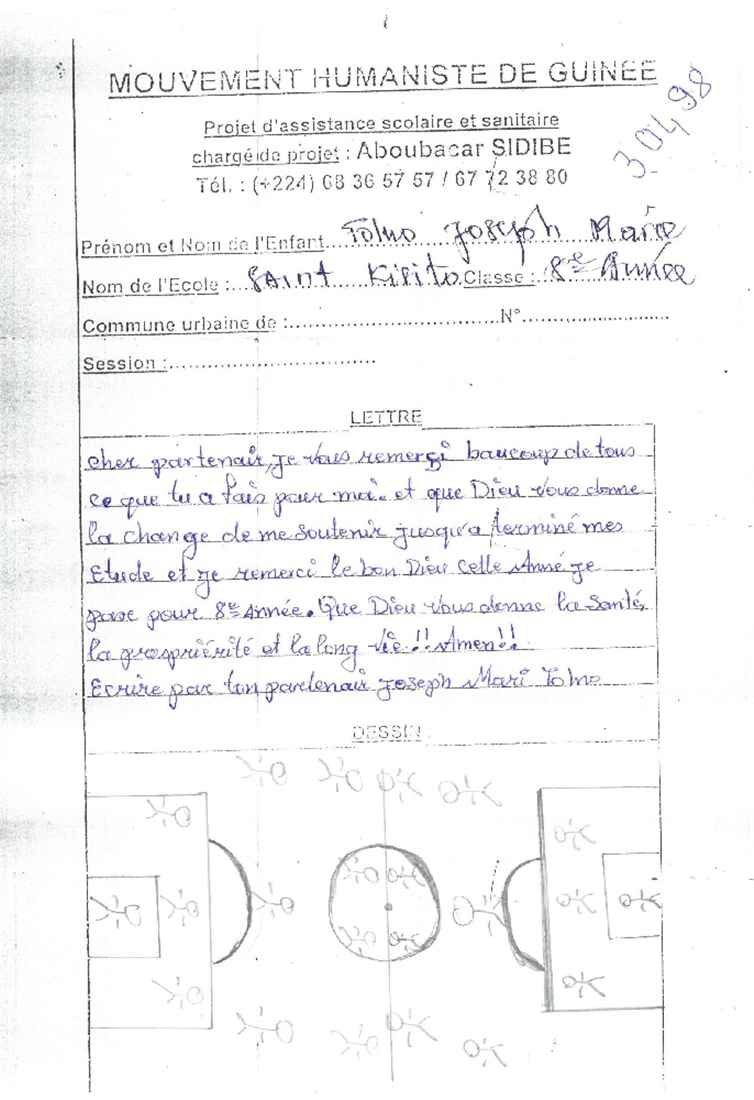 MOUVEMENT HUMANISTE DE GUINEE
Projet d'assistance scolaire et sanitaire
chargé de projet : Aboubacar SIDIBE
Tél. : (+224) 68 36 57 57 / 67 72 38 80
Prénom et Nom de l'Enfant Tolno Joseph Marie
Nom de l'Ecole : SAint Kisito Classe : 8e Année
Commune urbaine de : N°
Session :
LETTRE
cher partenair, je vous remerçi baucoup de tous
ce que tu a fais pour moi. et que Dieu vous donne
la change de me soutenir jusqu'a terminé mes
Etude et je remerci le bon Dieu Celle Anné je
pour 8e Année. Que Dieu vous donne la Santé,
la et la long vie !! Amen!!
Ecrire par ton partenair Joseph Mari Tolno
DESSIN